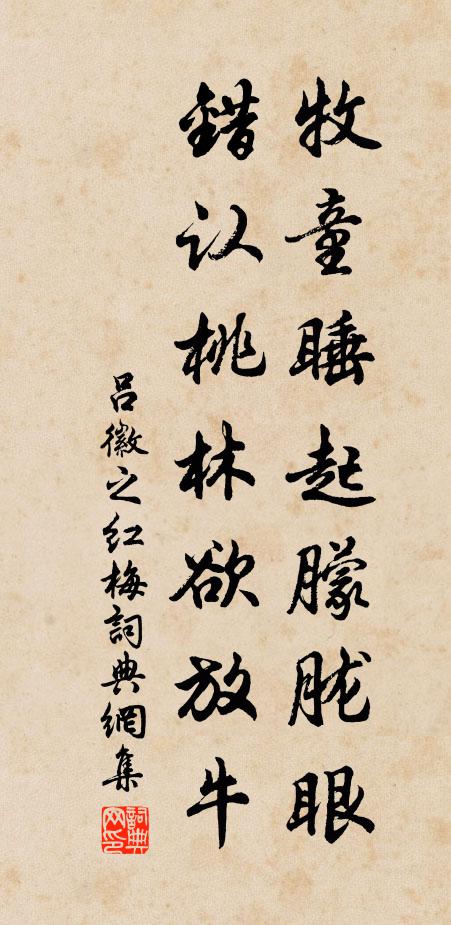 牧童睡起朦胧眼
錯认桃林欲放牛
吕徽之红梅詞典網集
詞典网印